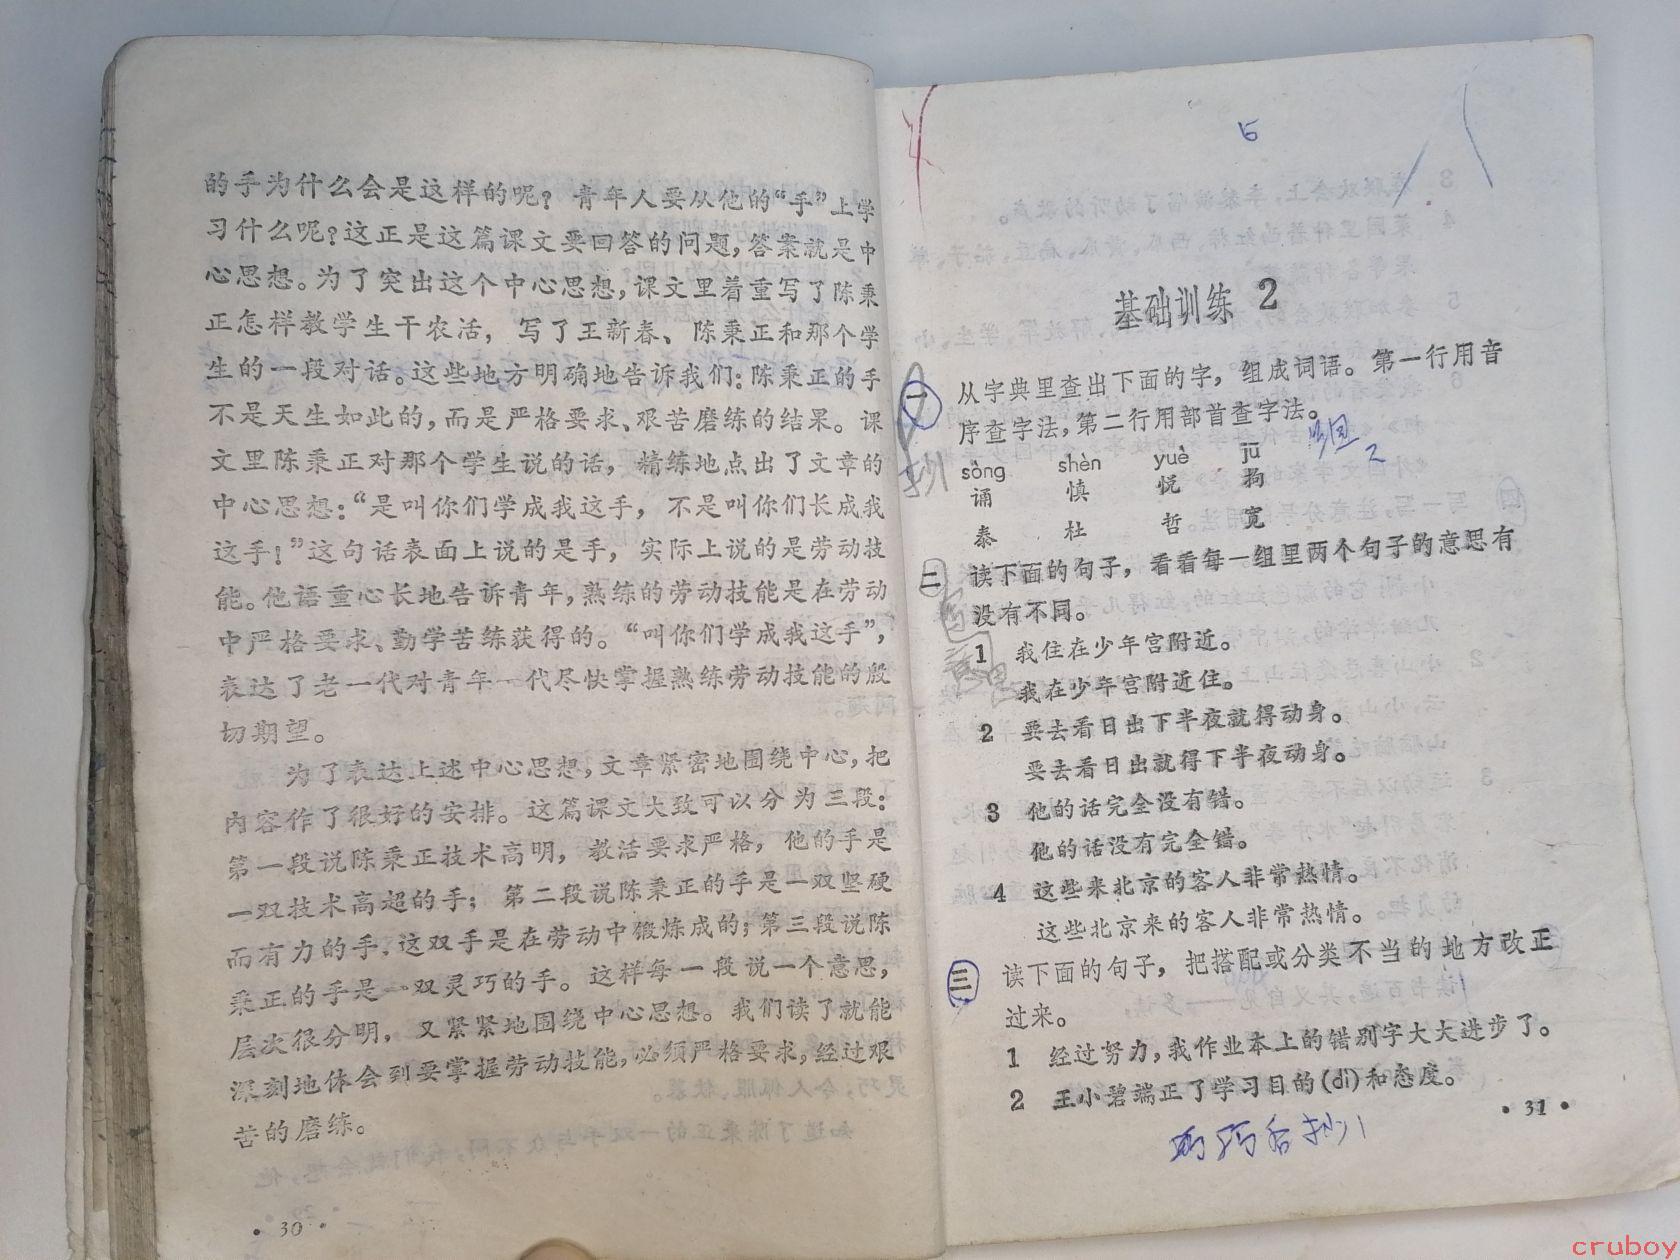 的手为什么会是这样的呢？青年人要从他的“手”上学
习什么呢？这正是这篇课文要回答的问题，答案就是中
心思想。为了突出这个中心思想，课文里着重写了陈秉
正怎样教学生干农活，写了王新春、陈秉正和那个学
生的一段对话。这些地方明确地告诉我们：陈秉正的手
不是天生如此的，而是严格要求、艰苦磨练的结果。课
文里陈秉正对那个学生说的话，精练地点出了文章的
中心思想：“是叫你们学成我这手，不是叫你们长成我
这手！”这句话表面上说的是手，实际上说的是劳动技
能。他语重心长地告诉青年，熟练的劳动技能是在劳动
中严格要求、勤学苦练获得的。“叫你们学成我这手”，
表达了老一代对青年一代尽快掌握熟练劳动技能的殷
切期望。
为了表达上述中心思想，文章紧密地围绕中心，把
内容作了很好的安排。这篇课文大致可以分为三段：
第一段说陈秉正技术高明，教活要求严格，他的手是
一双技术高超的手；第二段说陈秉正的手是一双坚硬
而有力的手，这双手是在劳动中锻炼成的；第三段说陈
秉正的手是一双灵巧的手。这样每一段说一个意思，
层次很分明，又紧紧地围绕中心思想。我们读了就能
深刻地体会到要掌握劳动技能，必须严格要求，经过艰
苦的磨练。
·30·
基础训练 2
一 从字典里查出下面的字，组成词语。第一行用音
序查字法，第二行用部首查字法。
sòng shèn yuè jū
诵 慎 悦 拘
泰 杜 哲 宽
二 读下面的句子，看看每一组里两个句子的意思有
没有不同。
1 我住在少年宫附近。
我在少年宫附近住。
2 要去看日出下半夜就得动身。
要去看日出就得下半夜动身。
3 他的话完全没有错。
他的话没有完全错。
4 这些来北京的客人非常热情。
这些北京来的客人非常热情。
三 读下面的句子，把搭配或分类不当的地方改正
过来。
1 经过努力，我作业本上的错别字大大进步了。
2 王小碧端正了学习目的(dì)和态度。
·31·
抄
意思
cruboy